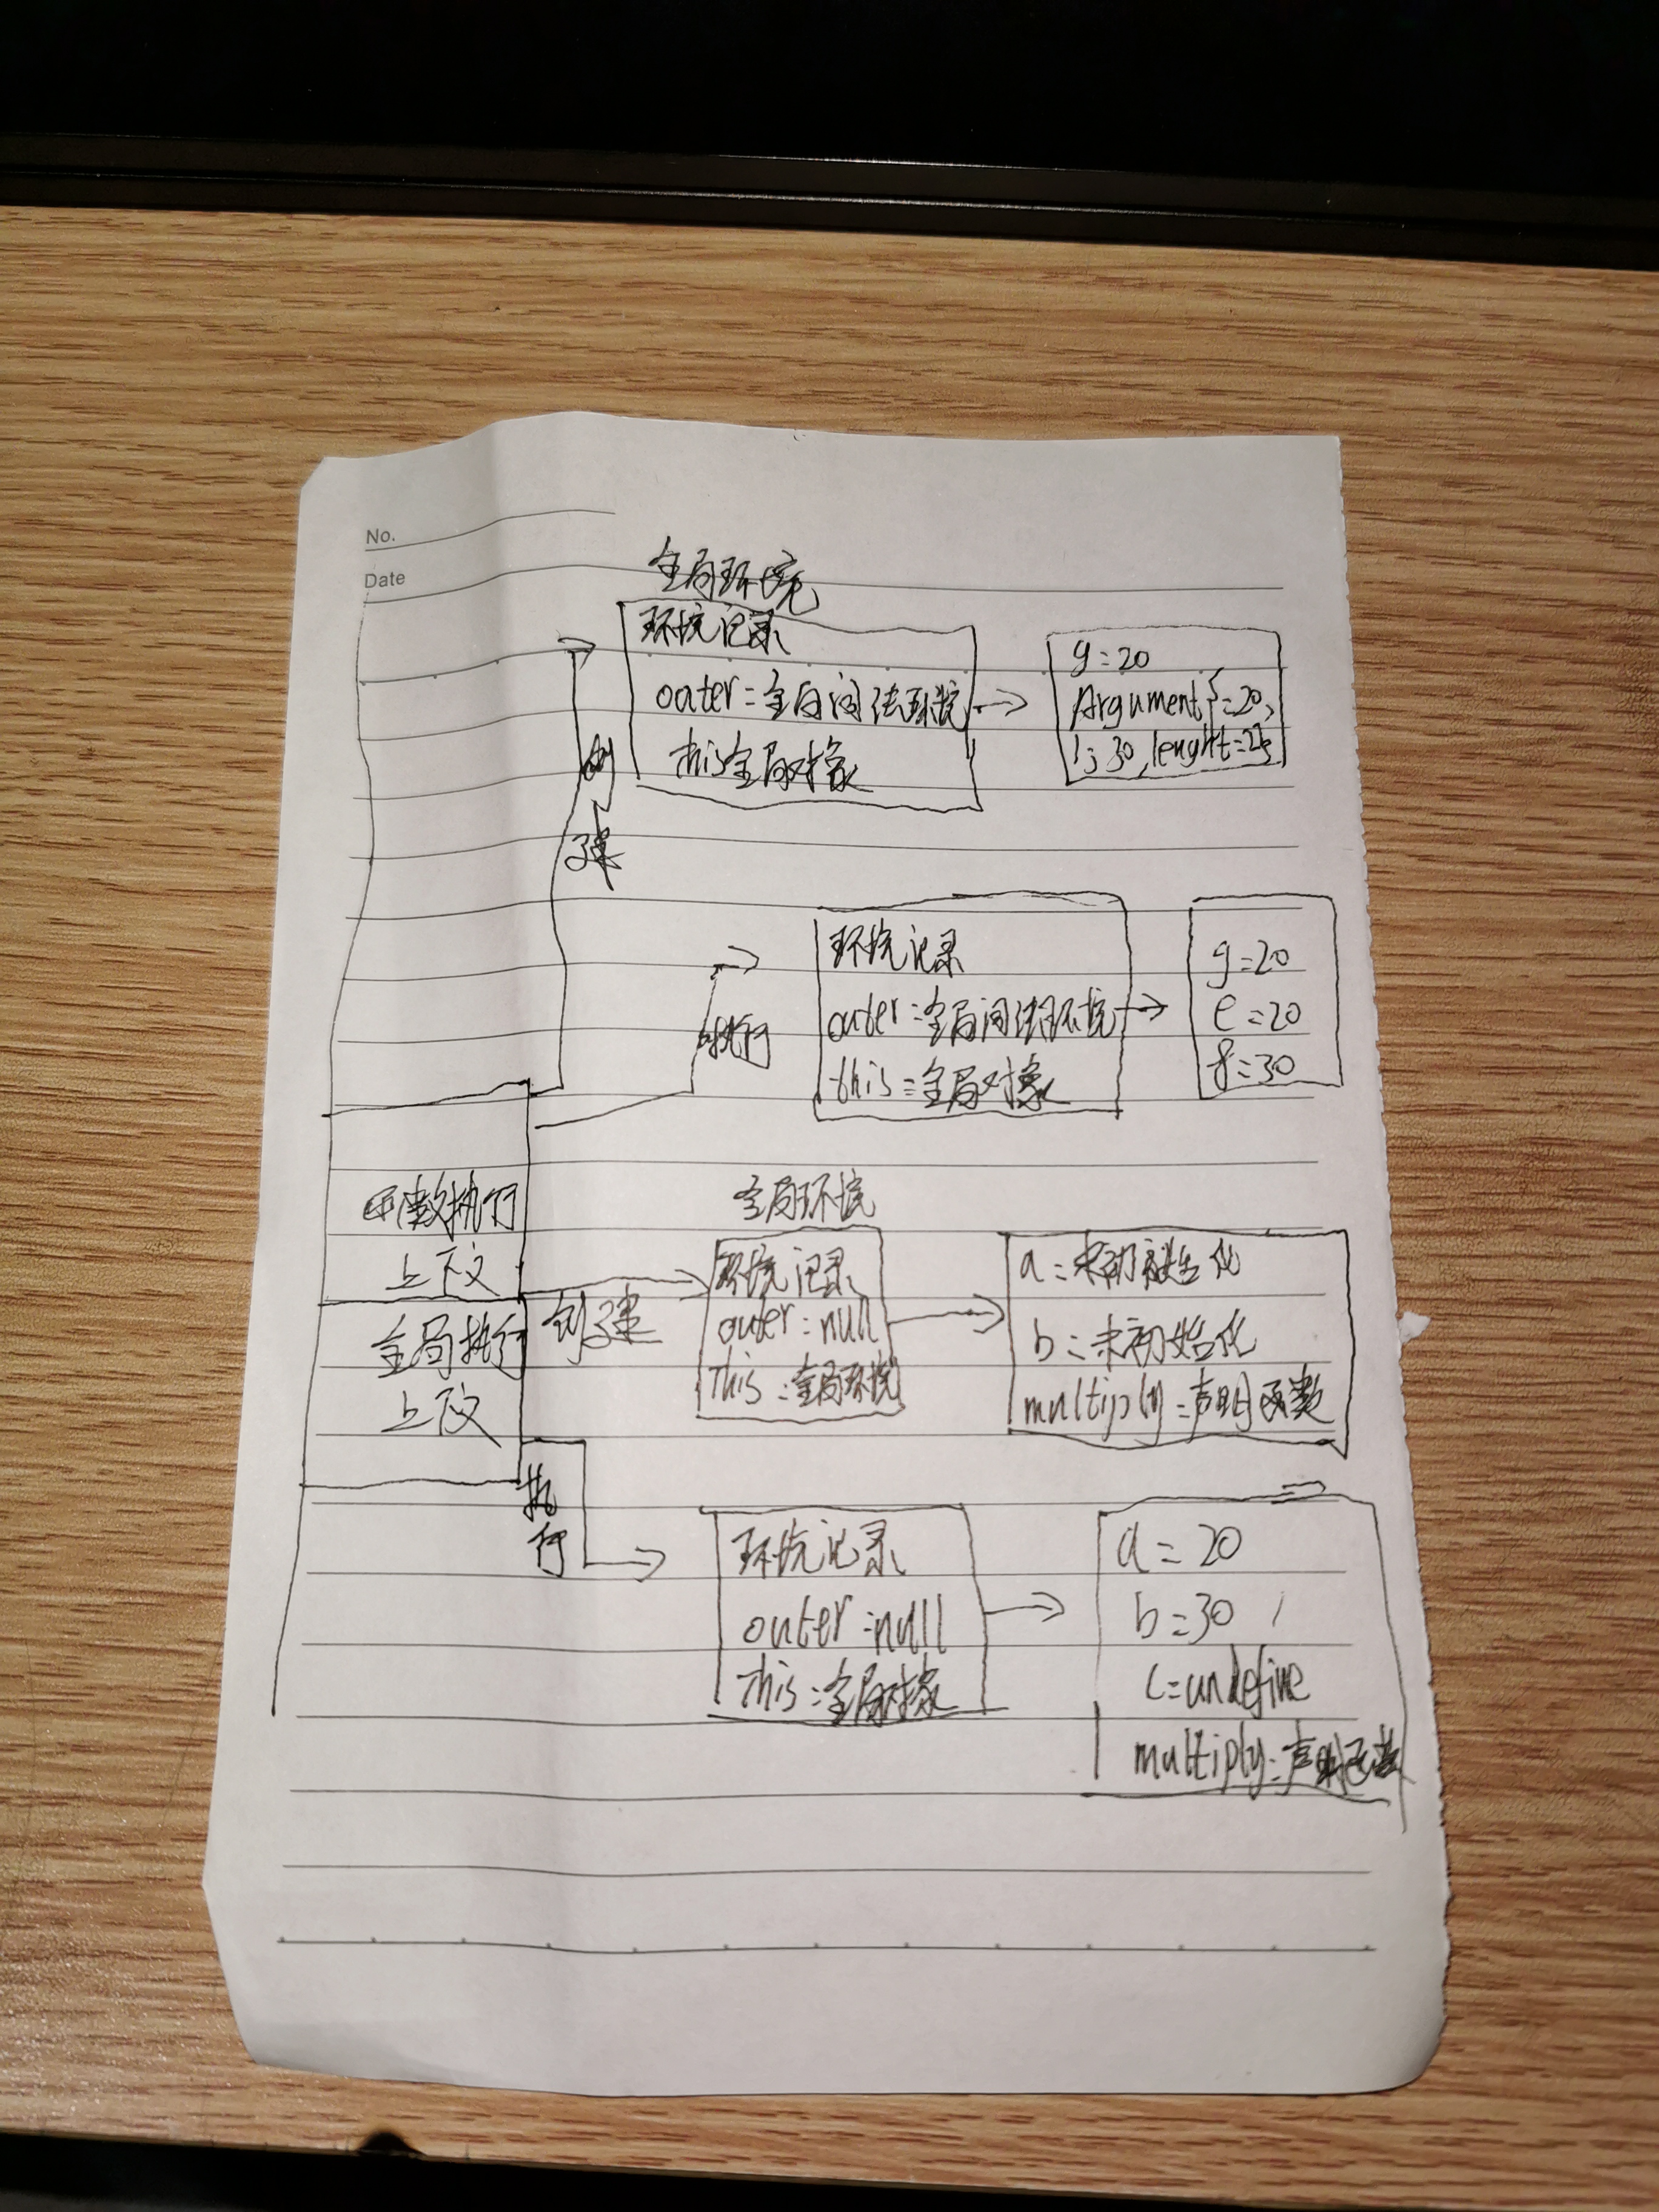 No.
Date
全局环境
环境记录
outer=全局词法环境
this全局对象
g=20
Argument{=20,
1:30,lenght=2}
创建
环境记录
outer=全局词法环境
this=全局对象
g=20
e=20
f=30
执行
函数执行
上下文
全局环境
环境记录
outer:null
This:全局环境
a=未初始化
b=未初始化
multiply=声明函数
全局执行
上下文
创建
执行
环境记录
outer:null
this:全局对象
a=20
b=30
c=undefine
multiply:声明函数